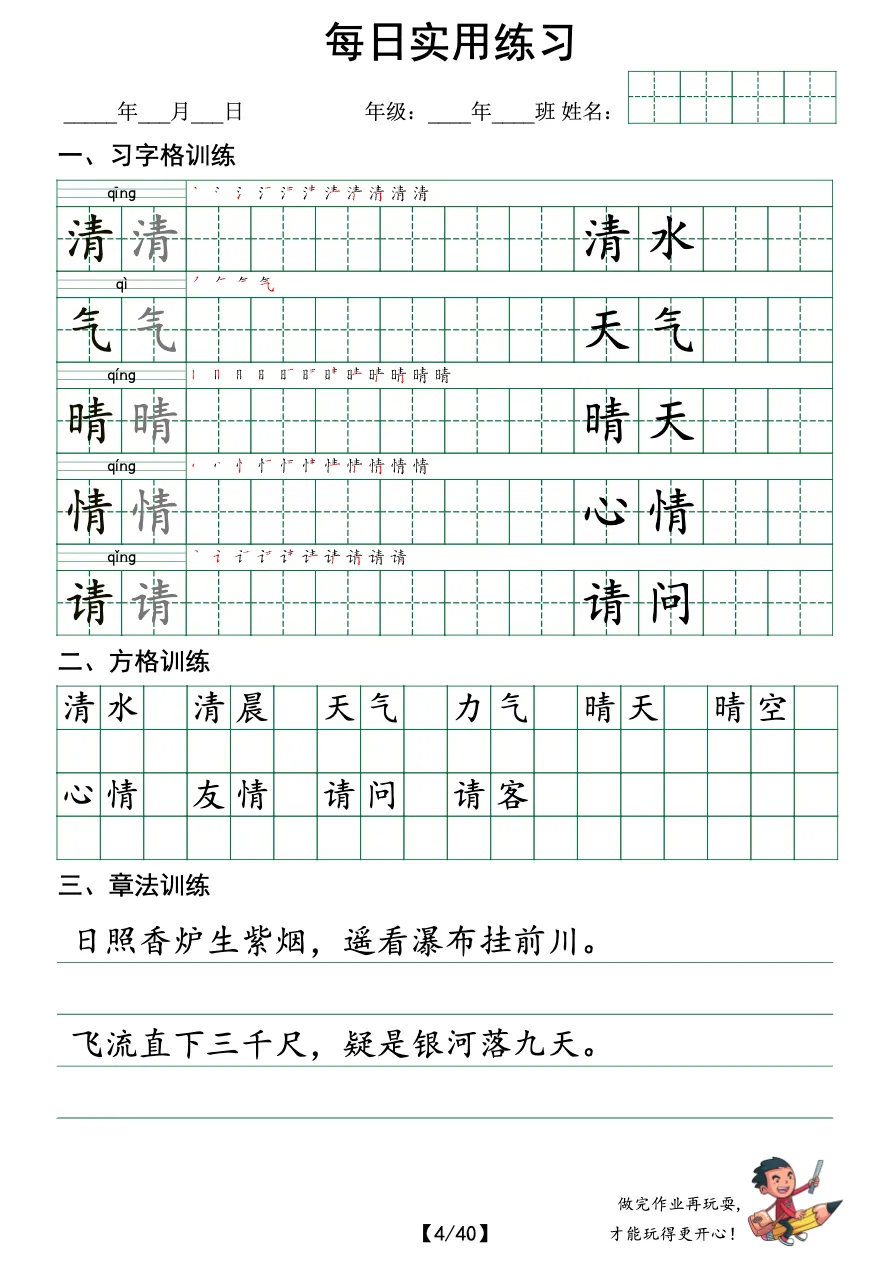 每日实用练习
_____年___月___日 年级：____年____班 姓名：
一、习字格训练
qīng
清 清 清 水
qì
气 气 天 气
qíng
晴 晴 晴 天
qíng
情 情 心 情
qǐng
请 请 请 问
二、方格训练
清 水 清 晨 天 气 力 气 晴 天 晴 空
心 情 友 情 请 问 请 客
三、章法训练
日照香炉生紫烟，遥看瀑布挂前川。
飞流直下三千尺，疑是银河落九天。
做完作业再玩耍，
才能玩得更开心！
【4/40】